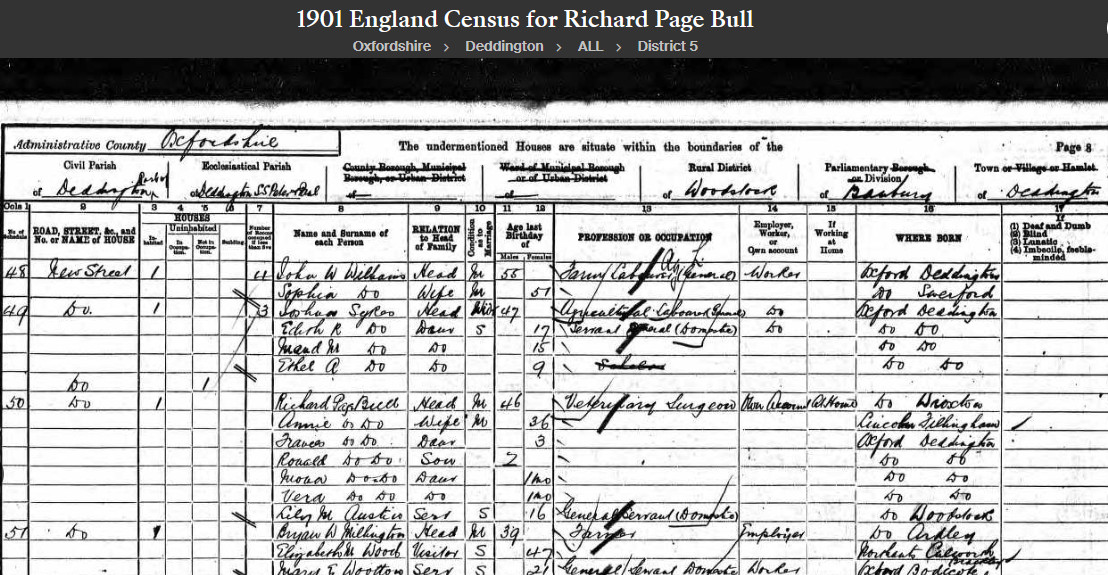 1901 England Census for Richard Page Bull
Oxfordshire > Deddington > ALL > District 5
Administrative County Oxfordshire
The undermentioned Houses are situate within the boundaries of the
Page 8
Civil Parish
of Deddington
Ecclesiastical Parish
of Deddington SS Peter & Paul
County Borough, Municipal Borough, or Urban District
of
Ward of Municipal Borough or of Urban District
of
Rural District
of Woodstock
Parliamentary Borough, or Division
of Banbury
Town or Village or Hamlet
of Deddington
Cols 1 2 3 4 5 6 7 8 9 10 11 12 13 14 15 16 17
No. of Schedule
ROAD, STREET, &c., and No. or NAME of HOUSE
HOUSES
Inhabited
Uninhabited
In Occupation.
Not in Occupation.
Building
Number of Rooms occupied if less than five
Name and Surname of each Person
RELATION to Head of Family
Condition as to Marriage
Age last Birthday of
Males Females
PROFESSION OR OCCUPATION
Employer, Worker, or Own account
If Working at Home
WHERE BORN
If
(1) Deaf and Dumb
(2) Blind
(3) Lunatic
(4) Imbecile, feeble-minded
48 New Street 1 4 John W Williams Head M 55 Farm Labourer (General) Worker Oxford Deddington
Sophia Do Wife M 51 Do Swerford
49 Do. 1 3 Joshua Sykes Head Widr 47 Agricultural Labourer Do Oxford Deddington
Edith R Do Daur S 17 Servant General (Domestic) Do Do Do
Maud M Do Do 15 Do Do
Ethel A Do Do 9 Scholar Do Do
Do 1
50 Do 1 Richard Page Bull Head M 46 Veterinary Surgeon Own Account At Home Do Wroxton
Annie Do Do Wife M 36 Lincoln Fillingham
Frances Do Do Daur 3 Oxford Deddington
Ronald Do Do Son 2 Do Do
Mona Do Do Daur 1mo Do Do
Vera Do Do Do 1mo Do Do
Lily M Austin Serv S 16 General Servant (Domestic) Do Woodstock
51 Do 1 Bryan W Millington Head M 39 Farmer Employer Do Ardley
Elizabeth M Wooch Visitor S 47 Northants Culworth
Mary E Wootton Serv S 21 General Servant Domestic Worker Oxford Bodicote